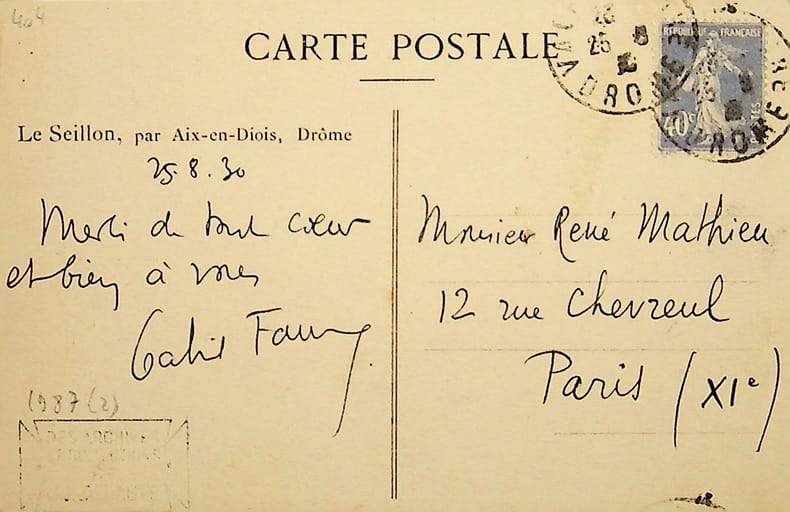 404
CARTE POSTALE
RÉPUBLIQUE FRANÇAISE
40c
POSTES
25
DROME
DROME
Le Seillon, par Aix-en-Diois, Drôme
25.8.30
Merci du tout cœur
et bien à vous
Gabriel Faury
Monsieur René Mathieu
12 rue Chevreul
Paris (XIe)
1987 (2)
DES ARCHIVES